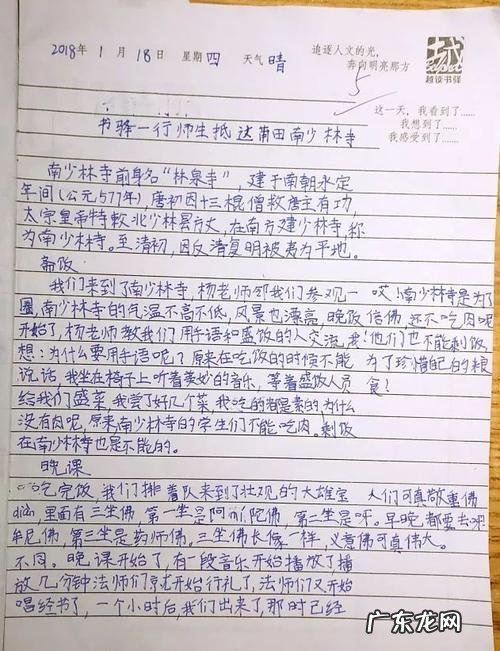 2018年1月18日 星期四 天气晴
追逐人文的光，
奔向明亮那方
越读书驿
5
这一天，我看到了……
我想到了……
我感受到了……
书驿一行师生抵达莆田南少林寺
南少林寺前身名“林泉寺”，建于南朝永定
年间(公元577年)唐初因十三棍僧救唐王有功，
太宗皇帝特敕北少林昙方丈，在南方建少林寺，称
为南少林寺。至清初，因反清复明被夷为平地。
斋饭
我们来到了南少林寺，杨老师带我们参观一
圈，南少林寺的气温不高不低，风景也漂亮，晚饭
开始了，杨老师教我们用手语和盛饭的人交流，
想：为什么要用手语呢？原来在吃饭的时候不能
说话，我坐在椅子上听着美妙的音乐，等着盛饭人员
给我们盛菜，我尝了好几个菜，我吃的都是素的，为什么
没有肉呢，原来南少林寺的学生们不能吃肉。剩饭
在南少林寺也是不能的。
哎！南少林寺是为了
信佛 还不吃肉呢
他们也不能剩饭
为了珍惜自己的粮
食！
晚课
吃完饭，我们排着队来到了壮观的大雄宝
dian，里面有三坐佛，第一坐是阿mi陀佛，第二坐是
牟尼佛，第三坐是药师佛，三坐佛长像一样，义意
不同。晚课开始了，有一段音乐开始播放了播
放几分钟法师们就开始行礼了，法师们又开始
唱经书了，一个小时后，我们出来了，那时已经
人们可真敬重佛
呀。早晚都要去呢
佛可真伟大。
广东龙网